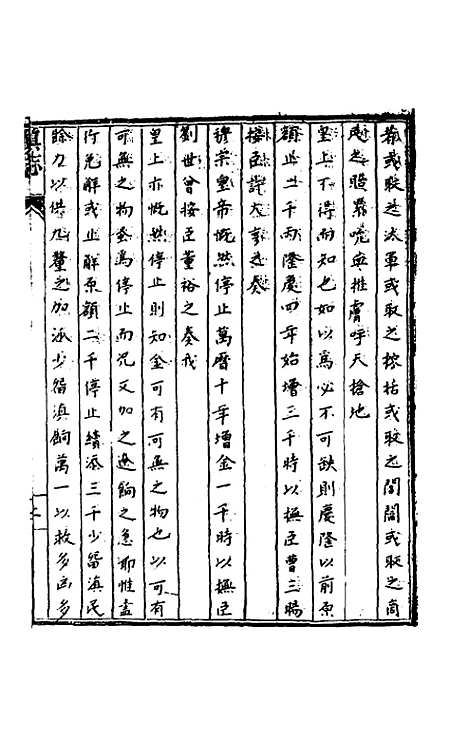 或取之汰軍或取之搜枯或取之閭閻或取之商
之髓嚴咤與椎膚呼天搶地
皇上不得而知也如以為必不可缺則慶隆以前原
額止二千兩隆慶四年始增三千時以撫臣曹三暘
按臣許大亨之奏
穆宗皇帝慨然停止萬曆十年增金一千時以撫臣
劉世曾按臣董裕之奏我
皇上亦慨然停止則知金可有可無之物也以可有
可無之物委為停止而况又加之邊餉之急耶惟盡
行免解或止解原額二千停止續添三千少留滇民
餘力以供九釐之加派少留滇餉萬一以救多凶多
滇志